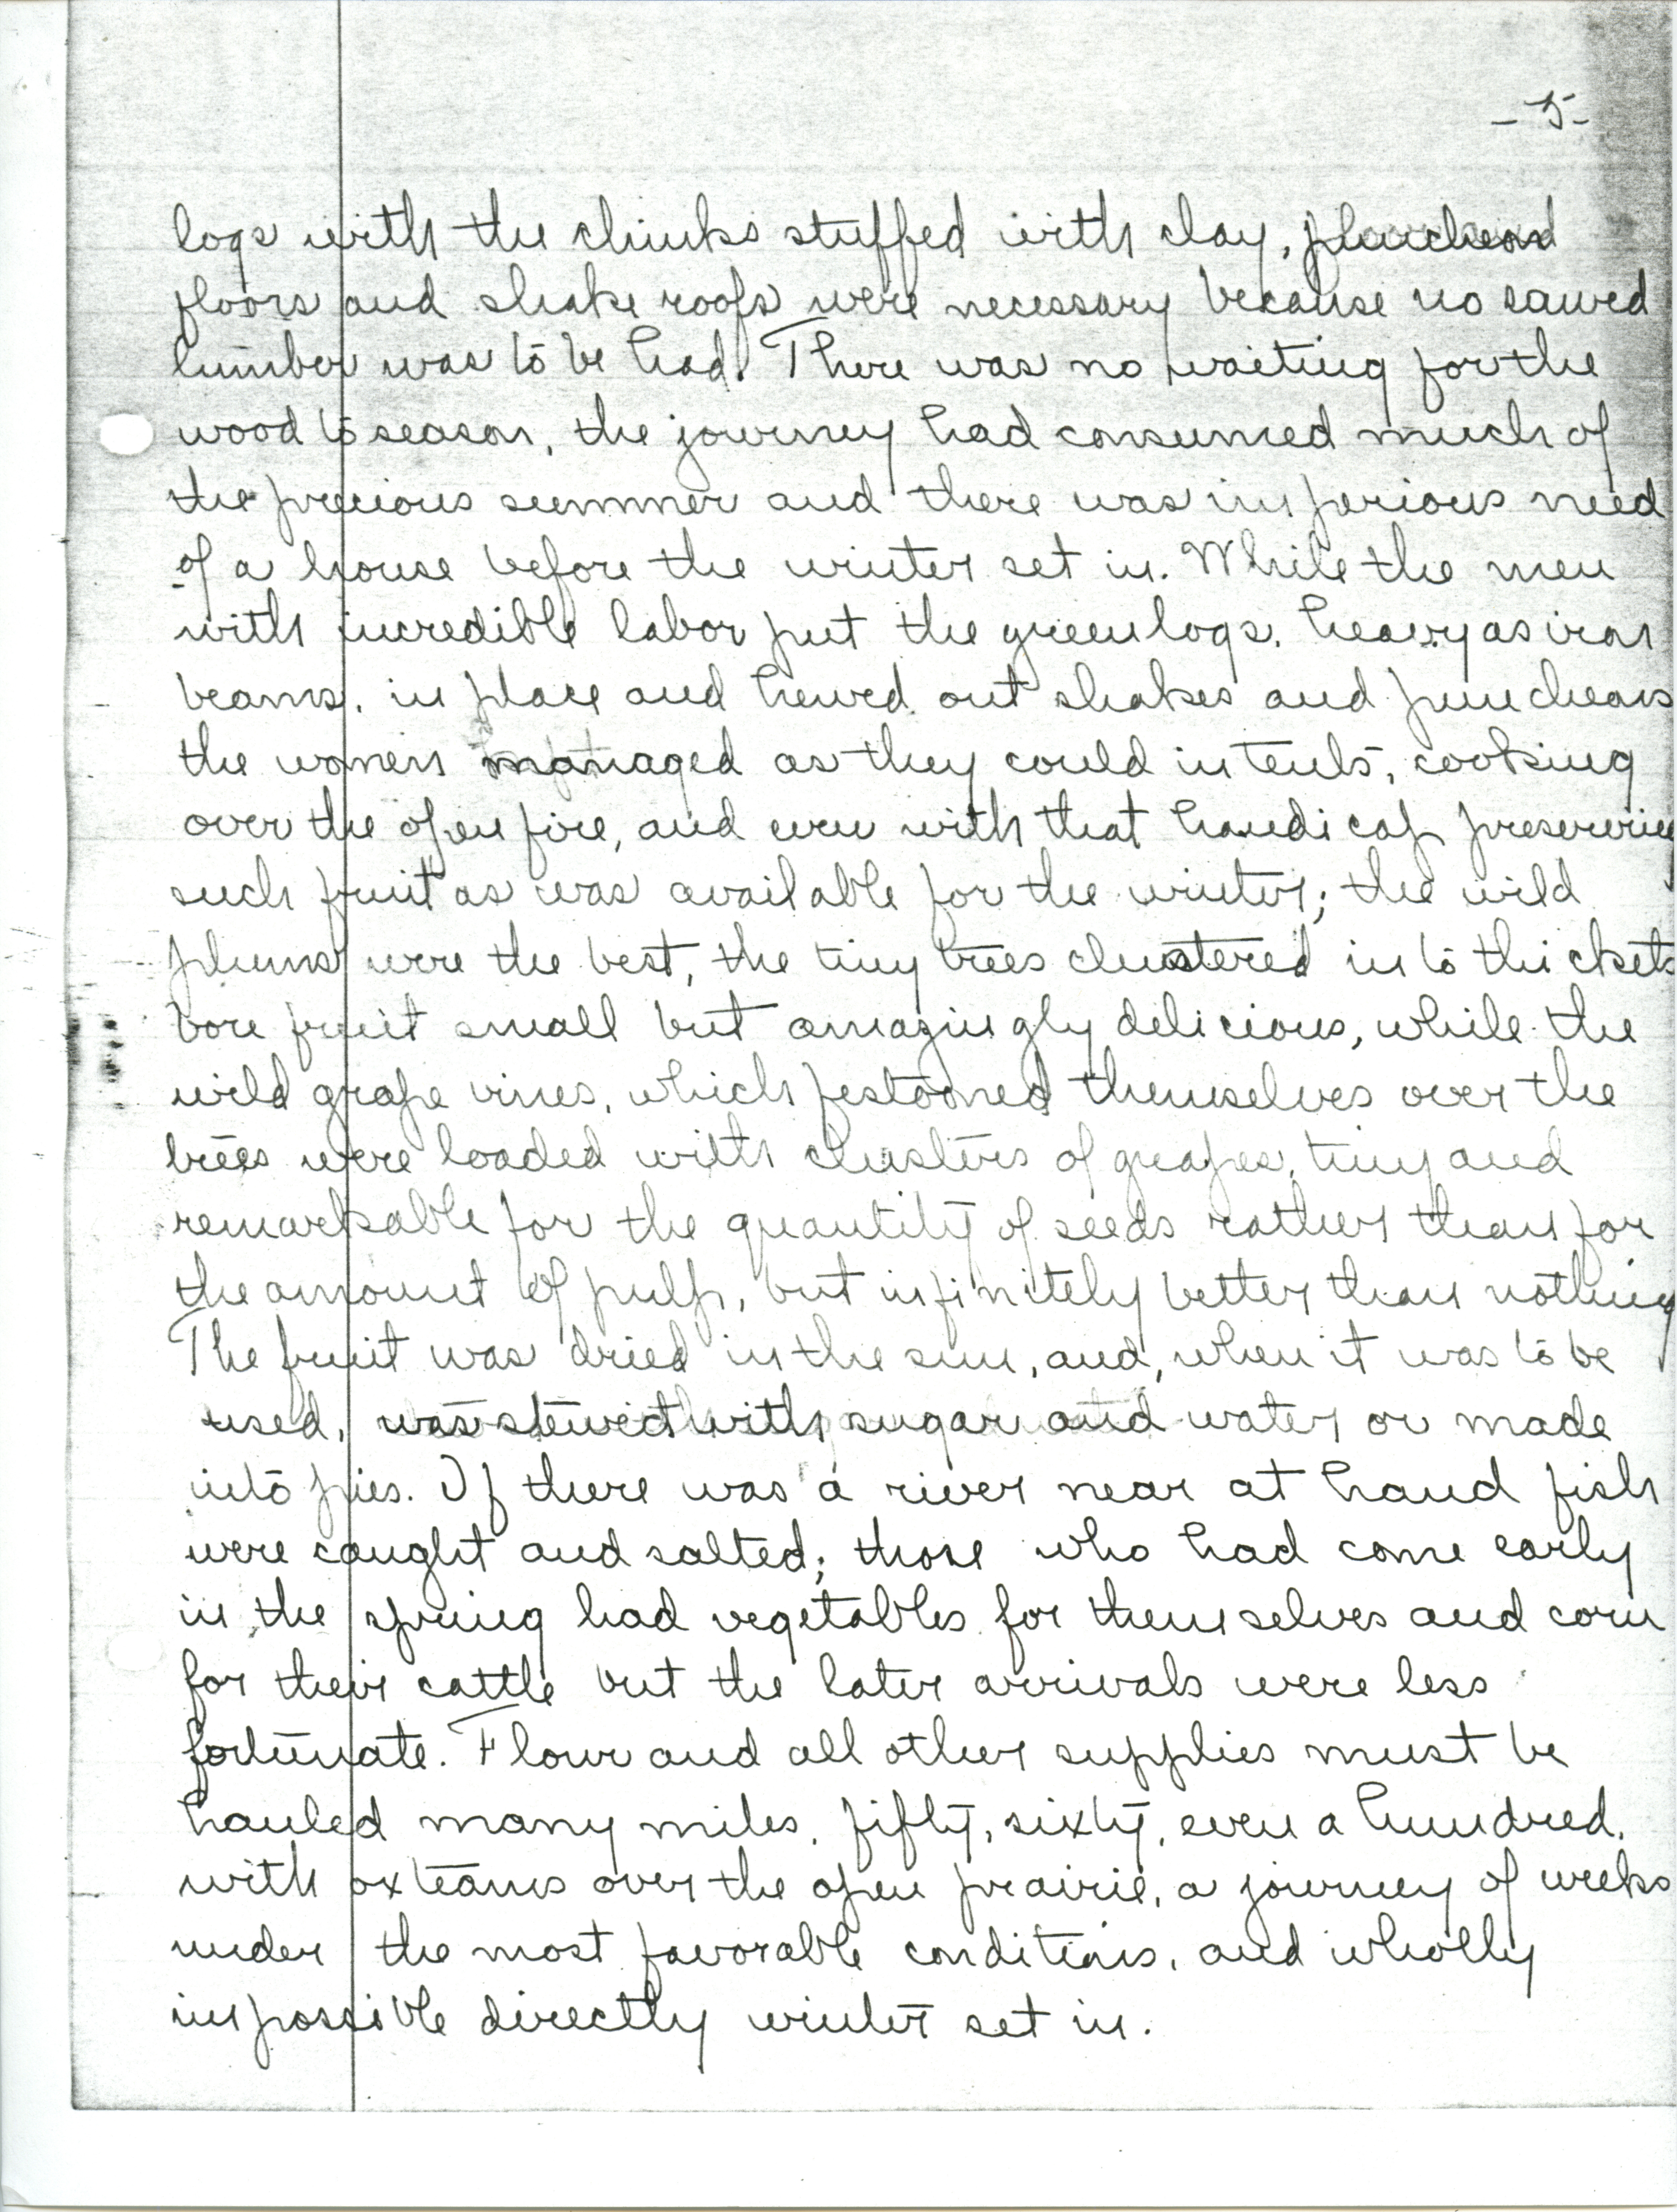 - 5 -
logs with the chinks stuffed with clay, puncheon
floors and shake roofs were necessary because no sawed
lumber was to be had. There was no waiting for the
wood to season, the journey had consumed much of
the precious summer and there was imperious need
of a house before the winter set in. While the men
with incredible labor put the green logs, heavy as iron
beams, in place and hewed out shakes and puncheons
the women managed as they could in tents, cooking
over the open fire, and even with that handicap preserving
such fruit as was available for the winter; the wild
plums were the best, the tiny trees clustered into thickets
bore fruit small but amazingly delicious, while the
wild grape vines, which festooned themselves over the
trees were loaded with clusters of grapes, tiny and
remarkable for the quantity of seeds rather than for
the amount of pulp, but infinitely better than nothing
The fruit was dried in the sun, and, when it was to be
used, was stewed with sugar and water or made
into pies. If there was a river near at hand fish
were caught and salted; those who had come early
in the spring had vegetables for themselves and corn
for their cattle but the later arrivals were less
fortunate. Flour and all other supplies must be
hauled many miles, fifty, sixty, even a hundred,
with ox teams over the open prairie, a journey of weeks
under the most favorable conditions, and wholly
impossible directly winter set in.